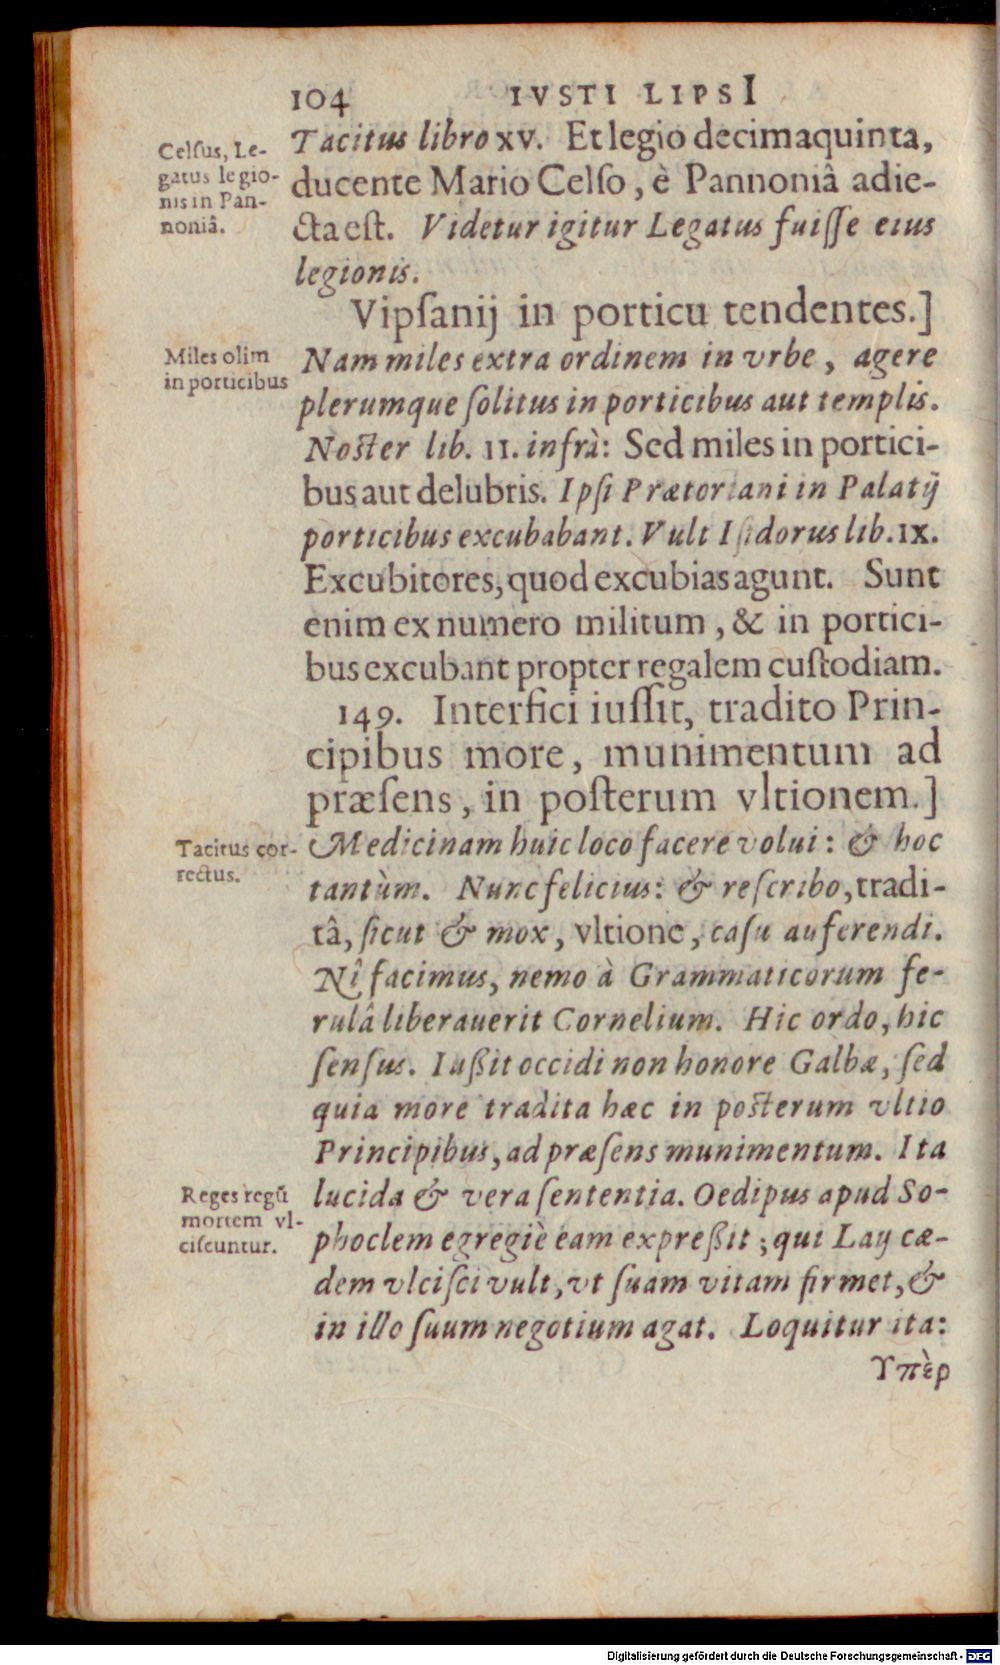 104 IVSTI LIPSI
Celſus, Le-
gatus legio-
nis in Pan-
noniâ.
Tacitus libro XV. Et legio decimaquinta,
ducente Mario Celſo, è Pannoniâ adie-
cta eſt. Videtur igitur Legatus fuiſſe eius
legionis.
Vipſanij in porticu tendentes.]
Miles olim
in porticibus
Nam miles extra ordinem in vrbe, agere
plerumque ſolitus in porticibus aut templis.
Noſter lib. II. infrà: Sed miles in portici-
bus aut delubris. Ipſi Prætoriani in Palatij
porticibus excubabant. Vult Iſidorus lib. IX.
Excubitores, quod excubias agunt. Sunt
enim ex numero militum, & in portici-
bus excubant propter regalem cuſtodiam.
149. Interfici iuſſit, tradito Prin-
cipibus more, munimentum ad
præſens, in poſterum vltionem.]
Tacitus cor-
rectus.
Medicinam huic loco facere volui: & hoc
tantùm. Nunc felicius: & reſcribo, tradi-
tâ, ſicut & mox, vltione, caſu auferendi.
Nî facimus, nemo à Grammaticorum fe-
rulâ liberauerit Cornelium. Hic ordo, hic
ſenſus. Iußit occidi non honore Galbæ, ſed
quia more tradita hæc in poſterum vltio
Principibus, ad præſens munimentum. Ita
Reges regū
mortem vl-
ciſcuntur.
lucida & vera ſententia. Oedipus apud So-
phoclem egregiè eam expreßit; qui Laij cæ-
dem vlciſci vult, vt ſuam vitam firmet, &
in illo ſuum negotium agat. Loquitur ita:
Υπὲρ
Digitalisierung gefördert durch die Deutsche Forschungsgemeinschaft - DFG